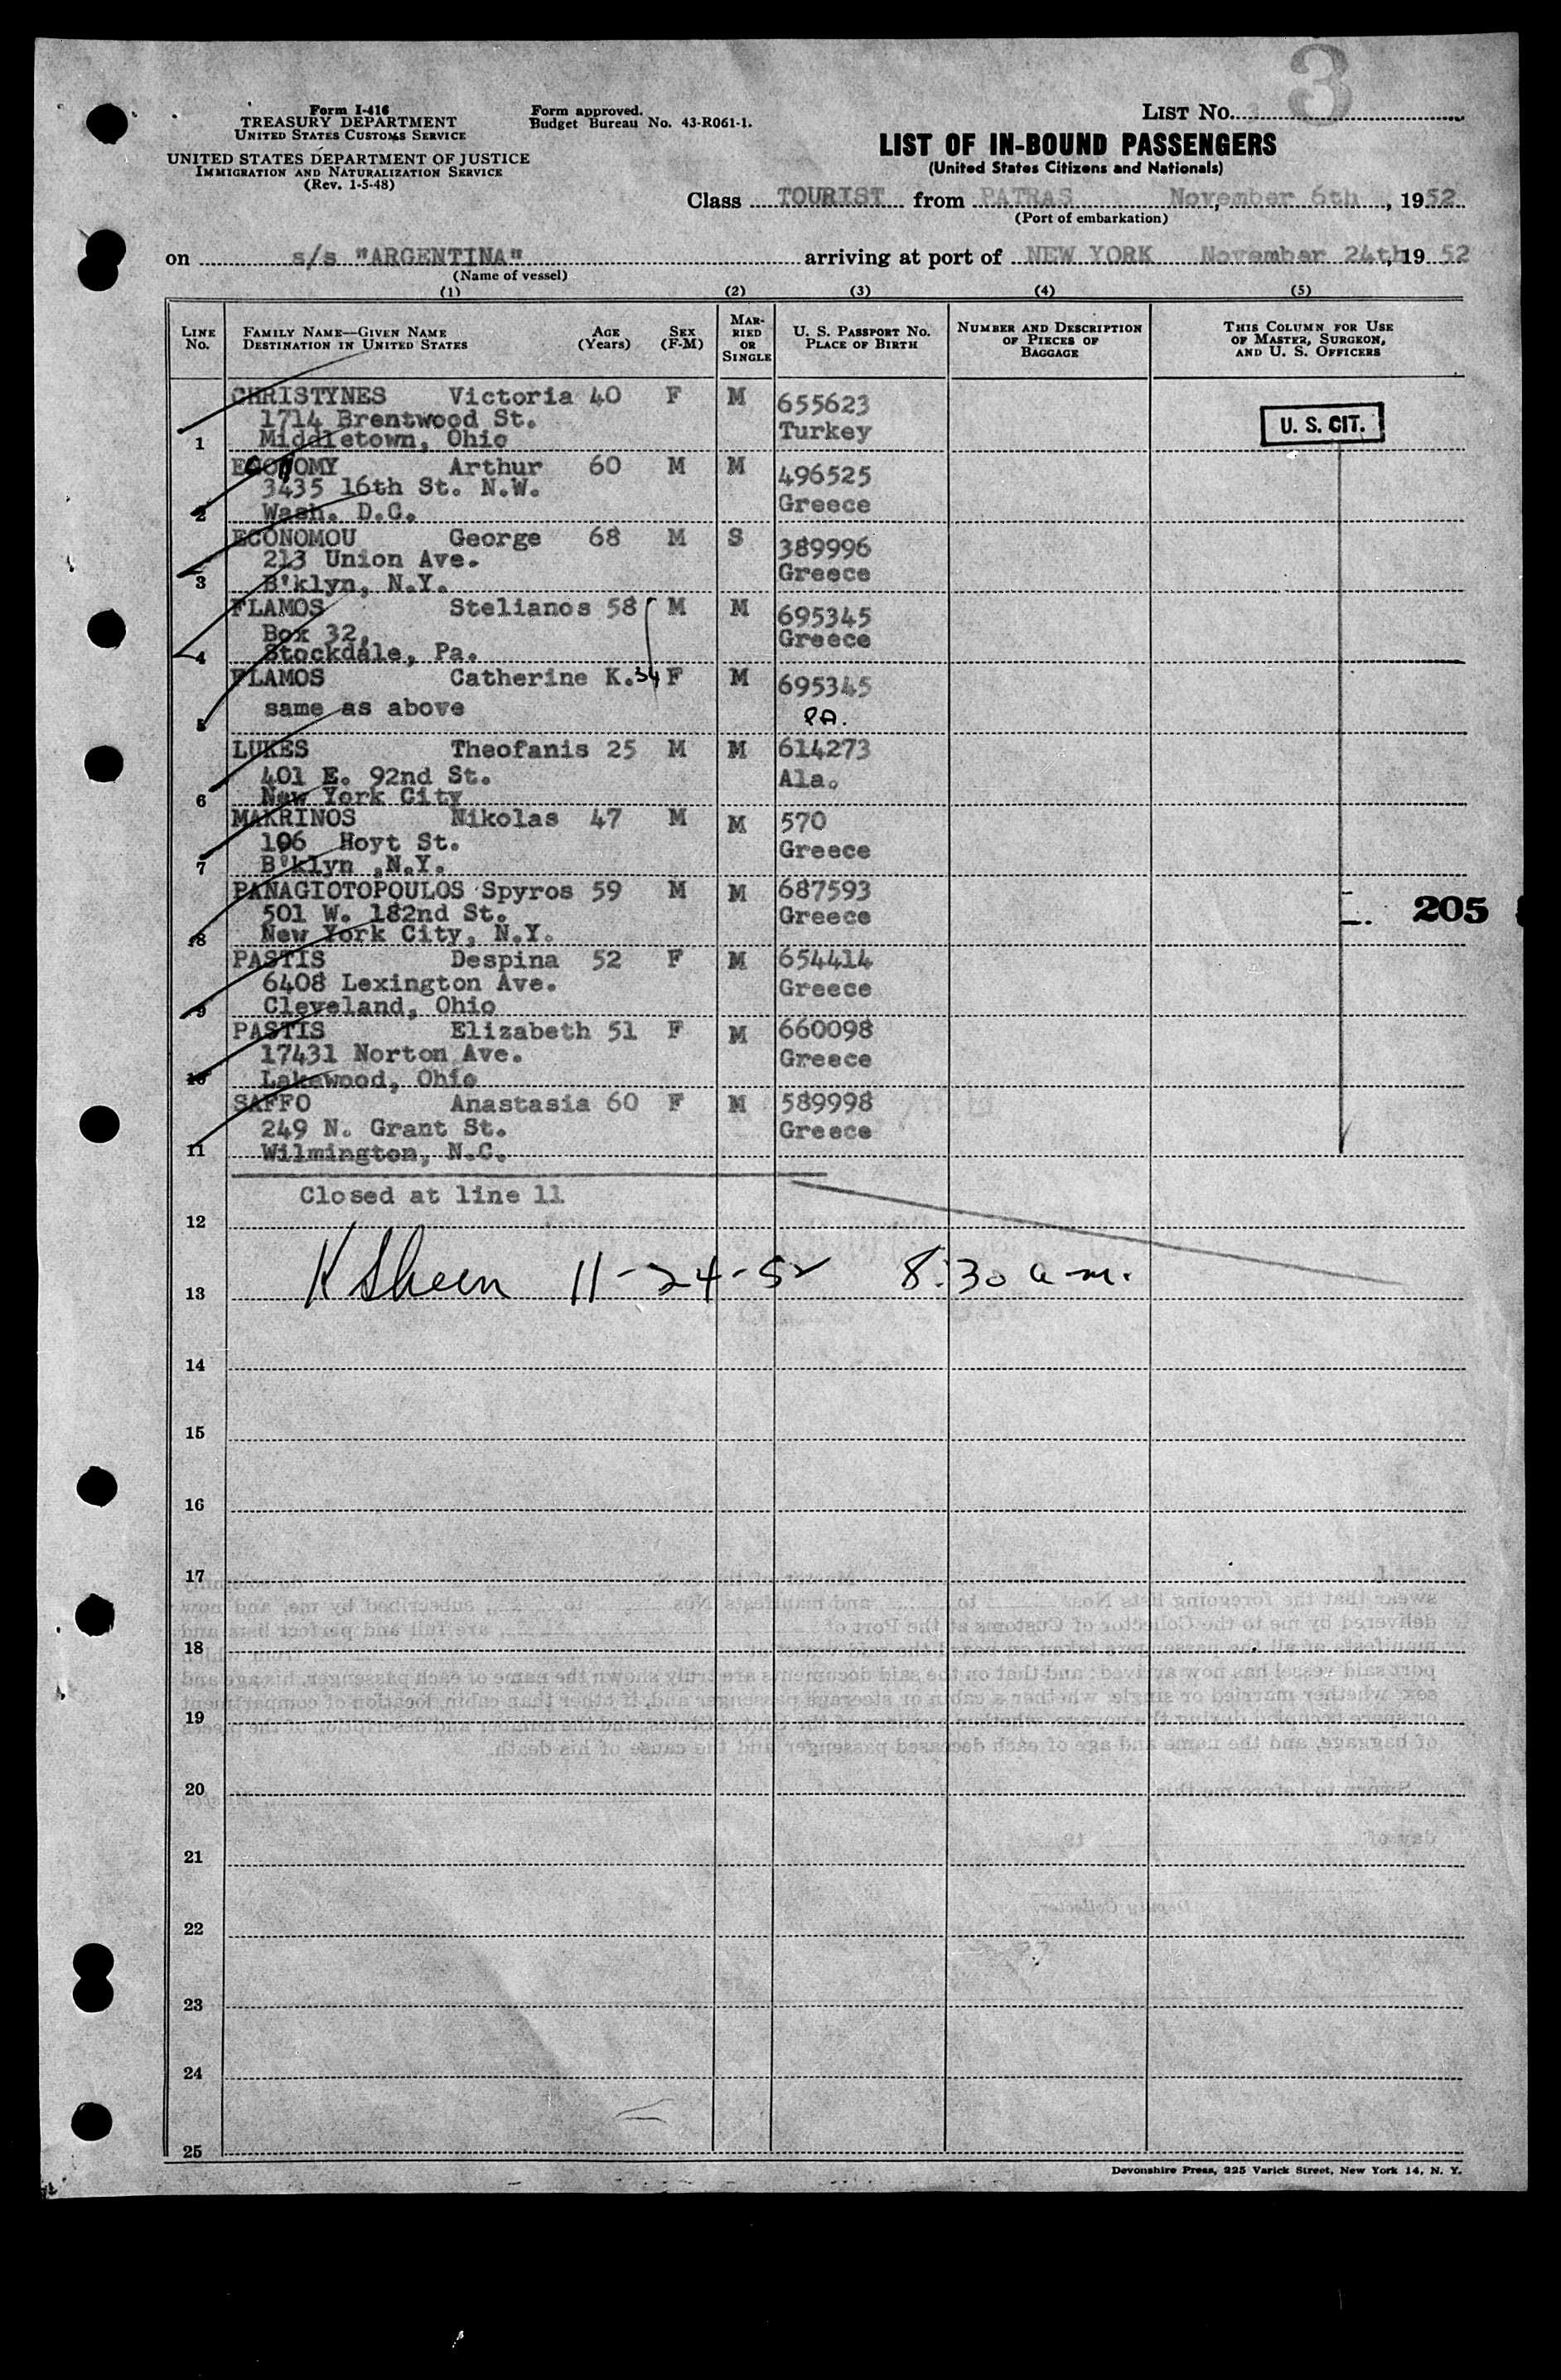 3
Form I-416
TREASURY DEPARTMENT
UNITED STATES CUSTOMS SERVICE
UNITED STATES DEPARTMENT OF JUSTICE
IMMIGRATION AND NATURALIZATION SERVICE
(Rev. 1-5-48)
Form approved.
Budget Bureau No. 43-R061-1.
LIST NO. 3
LIST OF IN-BOUND PASSENGERS
(United States Citizens and Nationals)
Class TOURIST from PATRAS, November 6th, 1952
(Port of embarkation)
on s/s "ARGENTINA" arriving at port of NEW YORK November 24th, 19 52
(Name of vessel)
(1) (2) (3) (4) (5)
LINE NO.
FAMILY NAME—GIVEN NAME
DESTINATION IN UNITED STATES
AGE (Years)
SEX (F-M)
MARRIED OR SINGLE
U. S. PASSPORT NO.
PLACE OF BIRTH
NUMBER AND DESCRIPTION OF PIECES OF BAGGAGE
THIS COLUMN FOR USE OF MASTER, SURGEON, AND U. S. OFFICERS
CHRISTYNES Victoria 40 F M 655623
1714 Brentwood St. Turkey U. S. CIT.
1 Middletown, Ohio
ECONOMY Arthur 60 M M 496525
3435 16th St. N.W. Greece
2 Wash. D.C.
ECONOMOU George 68 M S 389996
213 Union Ave. Greece
3 B'klyn, N.Y.
FLAMOS Stelianos 58 M M 695345
Box 32, Greece
4 Stockdale, Pa.
FLAMOS Catherine K. 34 F M 695345
5 same as above PA.
LUKES Theofanis 25 M M 614273
401 E. 92nd St. Ala.
6 New York City
MAKRINOS Nikolas 47 M M 570
106 Hoyt St. Greece
7 B'klyn ,N.Y.
PANAGIOTOPOULOS Spyros 59 M M 687593 205
501 W. 182nd St. Greece
8 New York City, N.Y.
PASTIS Despina 52 F M 654414
6408 Lexington Ave. Greece
9 Cleveland, Ohio
PASTIS Elizabeth 51 F M 660098
17431 Norton Ave. Greece
10 Lakewood, Ohio
SAFFO Anastasia 60 F M 589998
249 N. Grant St. Greece
11 Wilmington, N.C.
Closed at line 11
12
13 K Sheen 11-24-52 8:30 a.m.
14
15
16
17
18
19
20
21
22
23
24
25
Devonshire Press, 225 Varick Street, New York 14, N. Y.